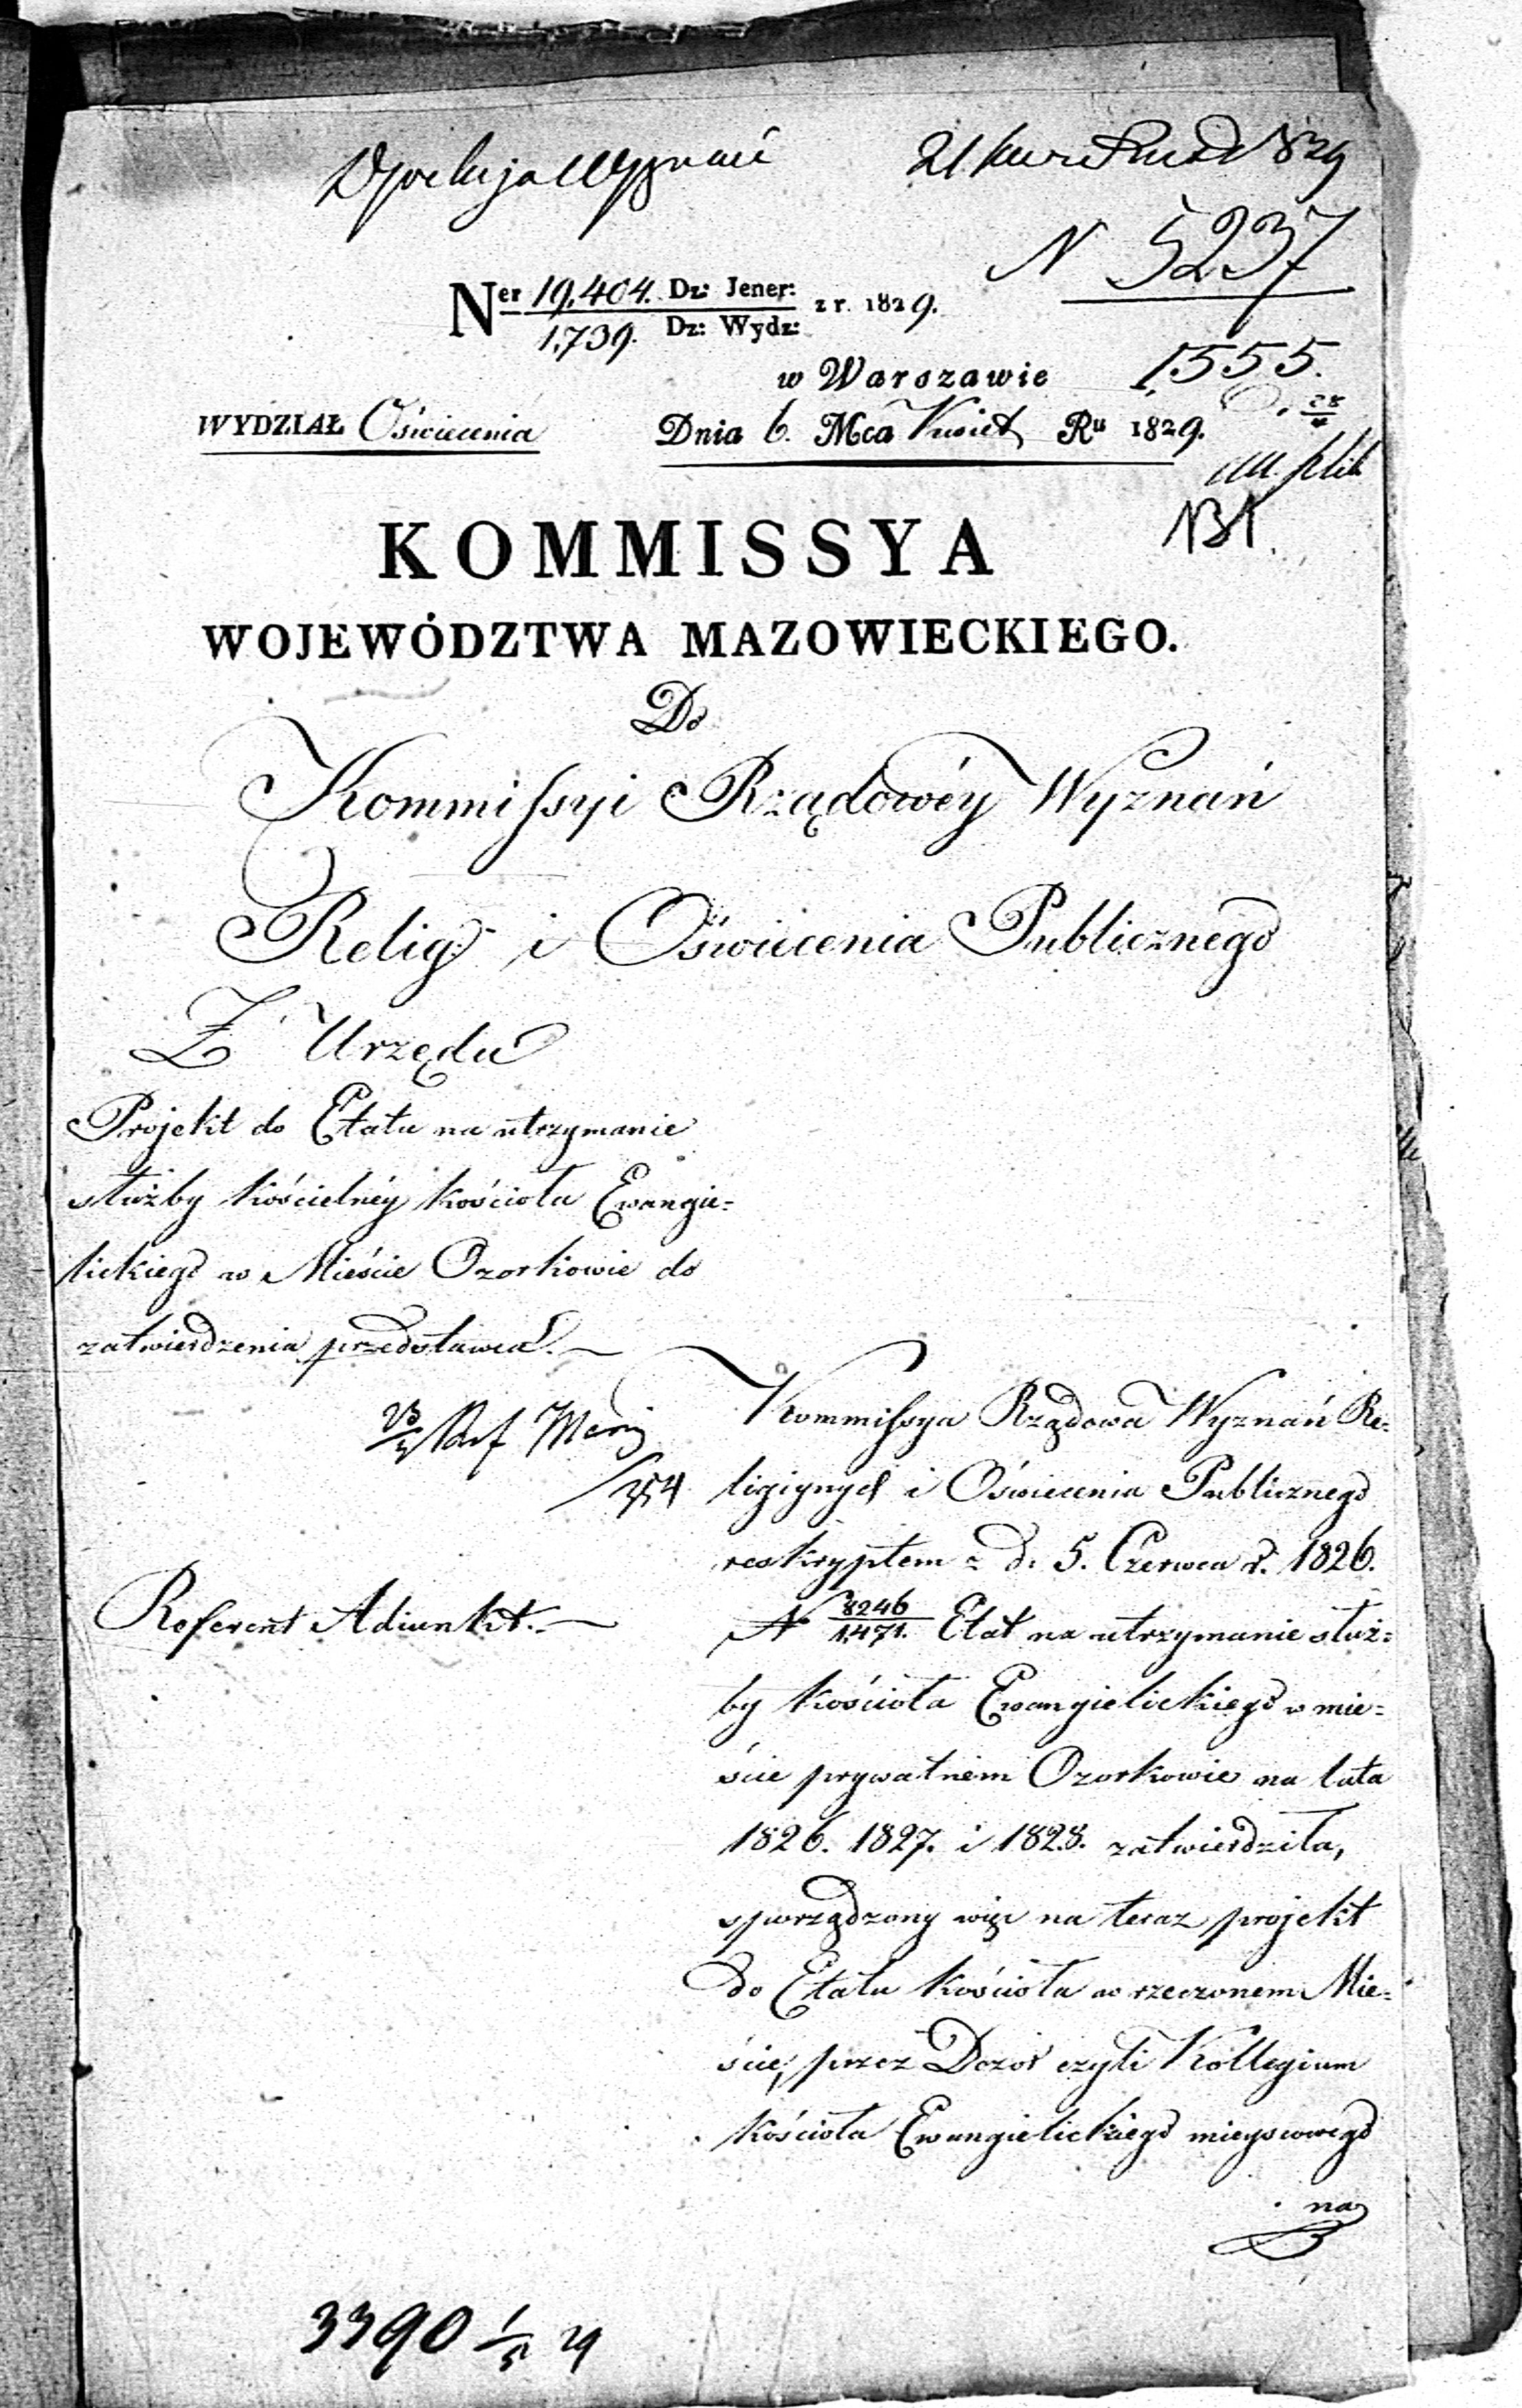 21 1829
N 5237
Ner 19,404. Dz: Jener: z r. 1829.
1,739. Dz: Wydz:
w Warszawie 1,555.
WYDZIAŁ Oświecenia Dnia 6. Mca Kwiet Ru 1829.
KOMMISSYA
WOJEWÓDZTWA MAZOWIECKIEGO.
Do
Kommissyi Rządowéy Wyznań
Relig: i Oświecenia Publicznego
Z Urzędu
Projekt do Etatu na utrzymanie
służby kościelnéy kościoła Ewangie=
lickiego w Mieście Ozorkowie do
zatwierdzenia przedstawia.
Kommissya Rządowa Wyznań Re=
ligiynych i Oświecenia Publicznego
reskryptem z d. 5. Czerwca r. 1826.
Referent Adiunkt.
N 8246/1,471. Etat na utrzymanie służ=
by kościoła Ewangielickiego w mie=
ście prywatnem Ozorkowie na lata
1826. 1827. i 1828. zatwierdziła,
sporządzony więc na teraz projekt
do Etatu kościoła w rzeczonem Mie=
ście, przez Dozór czyli Kollegium
kościoła Ewangielickiego mieyscowego
na
3390 1/5 29